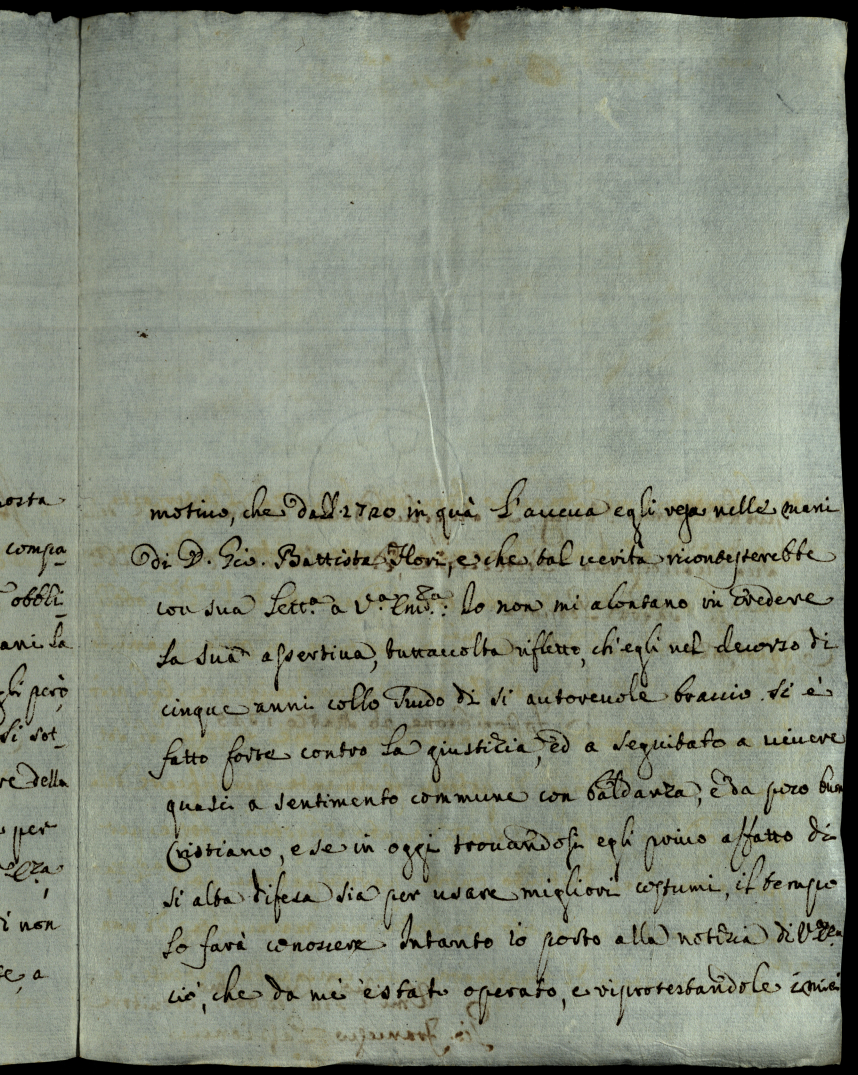 osta
compa
obbli
ani la
gli però
si sot
re della
per
i non
e, a
motivo, che dall 1720 in quà l'aveva egli resa nelle mani
di D. Gio. Battista Flori, e che tal verità riconteserebbe
con sua Lett.a a V.a Em.za: Io non mi alontano in credere
la sua assertiva, tuttavolta rifletto, ch'egli nel decorso di
cinque anni collo scudo di si autorevole braccio si è
fatto forte contro la giustizia, ed a seguitato a vivere
quasi a sentimento commune con baldanza, e da poco buon
Cristiano, e se in oggi trovandosi egli privo affatto di
si alta difesa sia per usare migliori costumi, il tempo
lo farà conoscere Intanto io porto alla notizia di V.
ciò, che da me è stato operato, e riprotestandole i miei